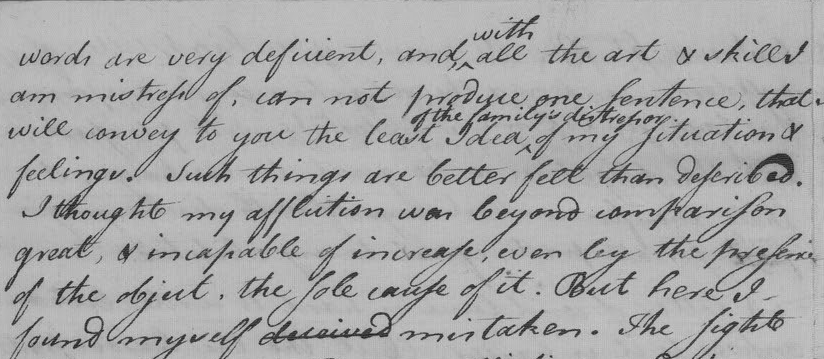 words are very deficient, and, with all the art & skill I
am mistress of, can not produce one sentence, that
will convey to you the least Idea, of the family's distress or of my situation &
feelings. Such things are better felt than described.
I thought my affliction was beyond comparison
great, & incapable of increase, even by the presence
of the object, the sole cause of it. But here I
found myself deceived mistaken. The sight